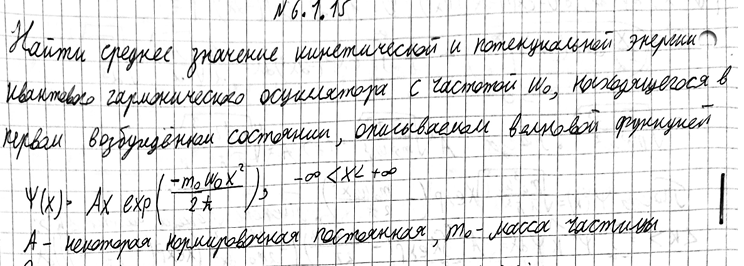 №6.1.15
Найти среднее значение кинетической и потенциальной энергии
квантового гармонического осциллятора с частотой ω₀, находящегося в
первом возбужденном состоянии, описываемом волновой функцией
Ψ(x) = Ax exp(-m₀ω₀x²/2ħ), -∞ < x < +∞
A - некоторая нормировочная постоянная, m₀ - масса частицы